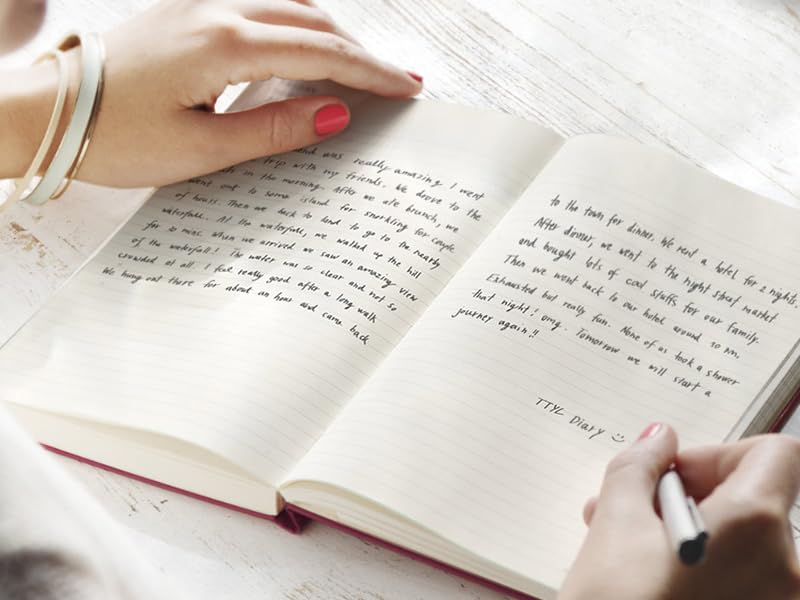 and was really amazing I went
trip with my friends. We drove to the
in the morning. After we ate brunch, we
went out to some island for snorkling for couple
of hours. Then we back to land to go to the nearby
waterfall. At the waterfall, we walked up the hill
for 20 mins. When we arrived we saw an amazing view
of the waterfall! The water was so clear and not so
crowded at all. I feel really good after a long walk
We hung out there for about an hour and came back
to the town for dinner. We rent a hotel for 2 nights.
After dinner, we went to the night street market
and bought lots of cool stuffs for our family.
Then we went back to our hotel around 10 pm.
Exhausted but really fun. None of us took a shower
that night! omg. Tomorrow we will start a
journey again!!
TTYL Diary